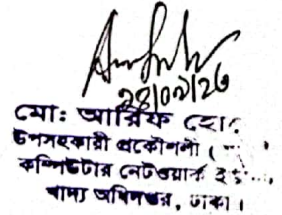 ২৪/০৯/২৩
মো: আরিফ হো
উপসহকারী প্রকৌশলী (
কম্পিউটার নেটওয়ার্ক ই
খাদ্য অধিদপ্তর, ঢাকা।